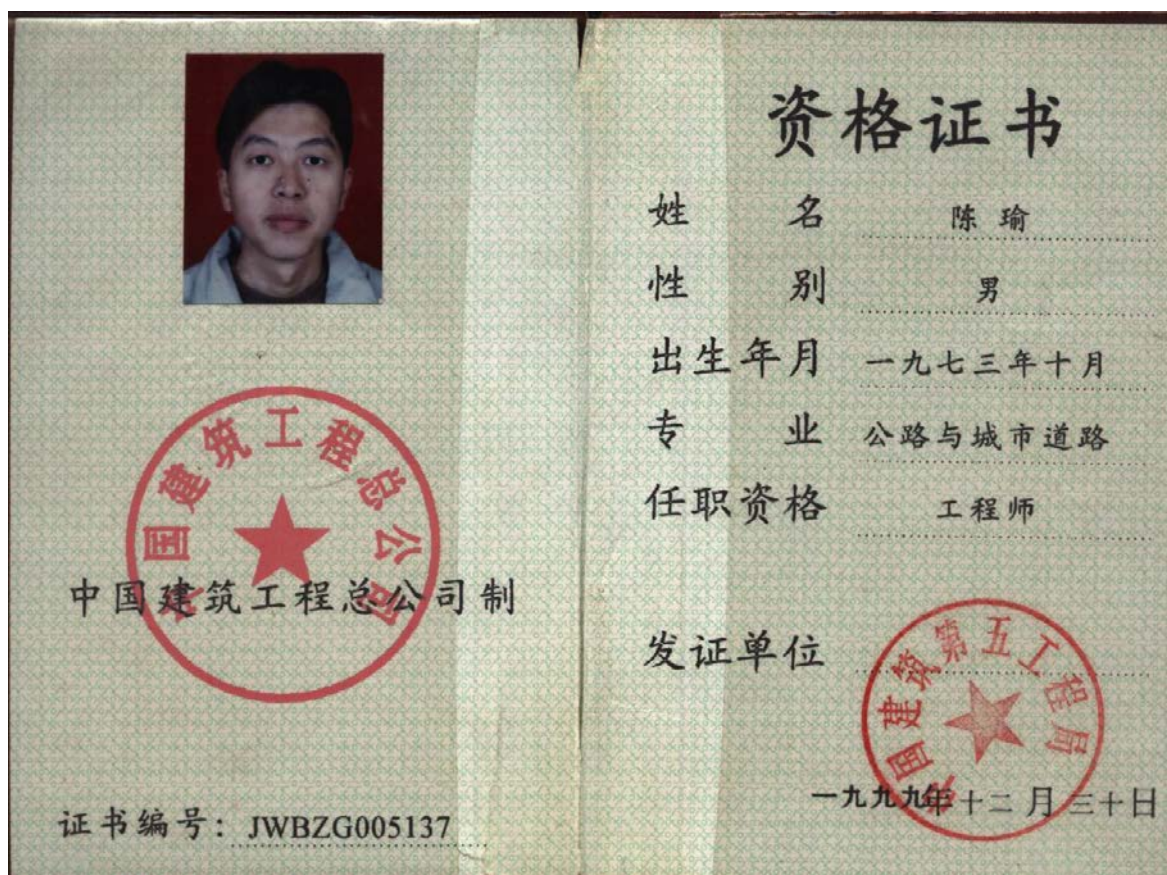 中国建筑工程总公司
中国建筑工程总公司制
证书编号：JWBZG005137
资格证书
姓名 陈瑜
性别 男
出生年月 一九七三年十月
专业 公路与城市道路
任职资格 工程师
发证单位
中国建筑第五工程局
一九九九年十二月三十日